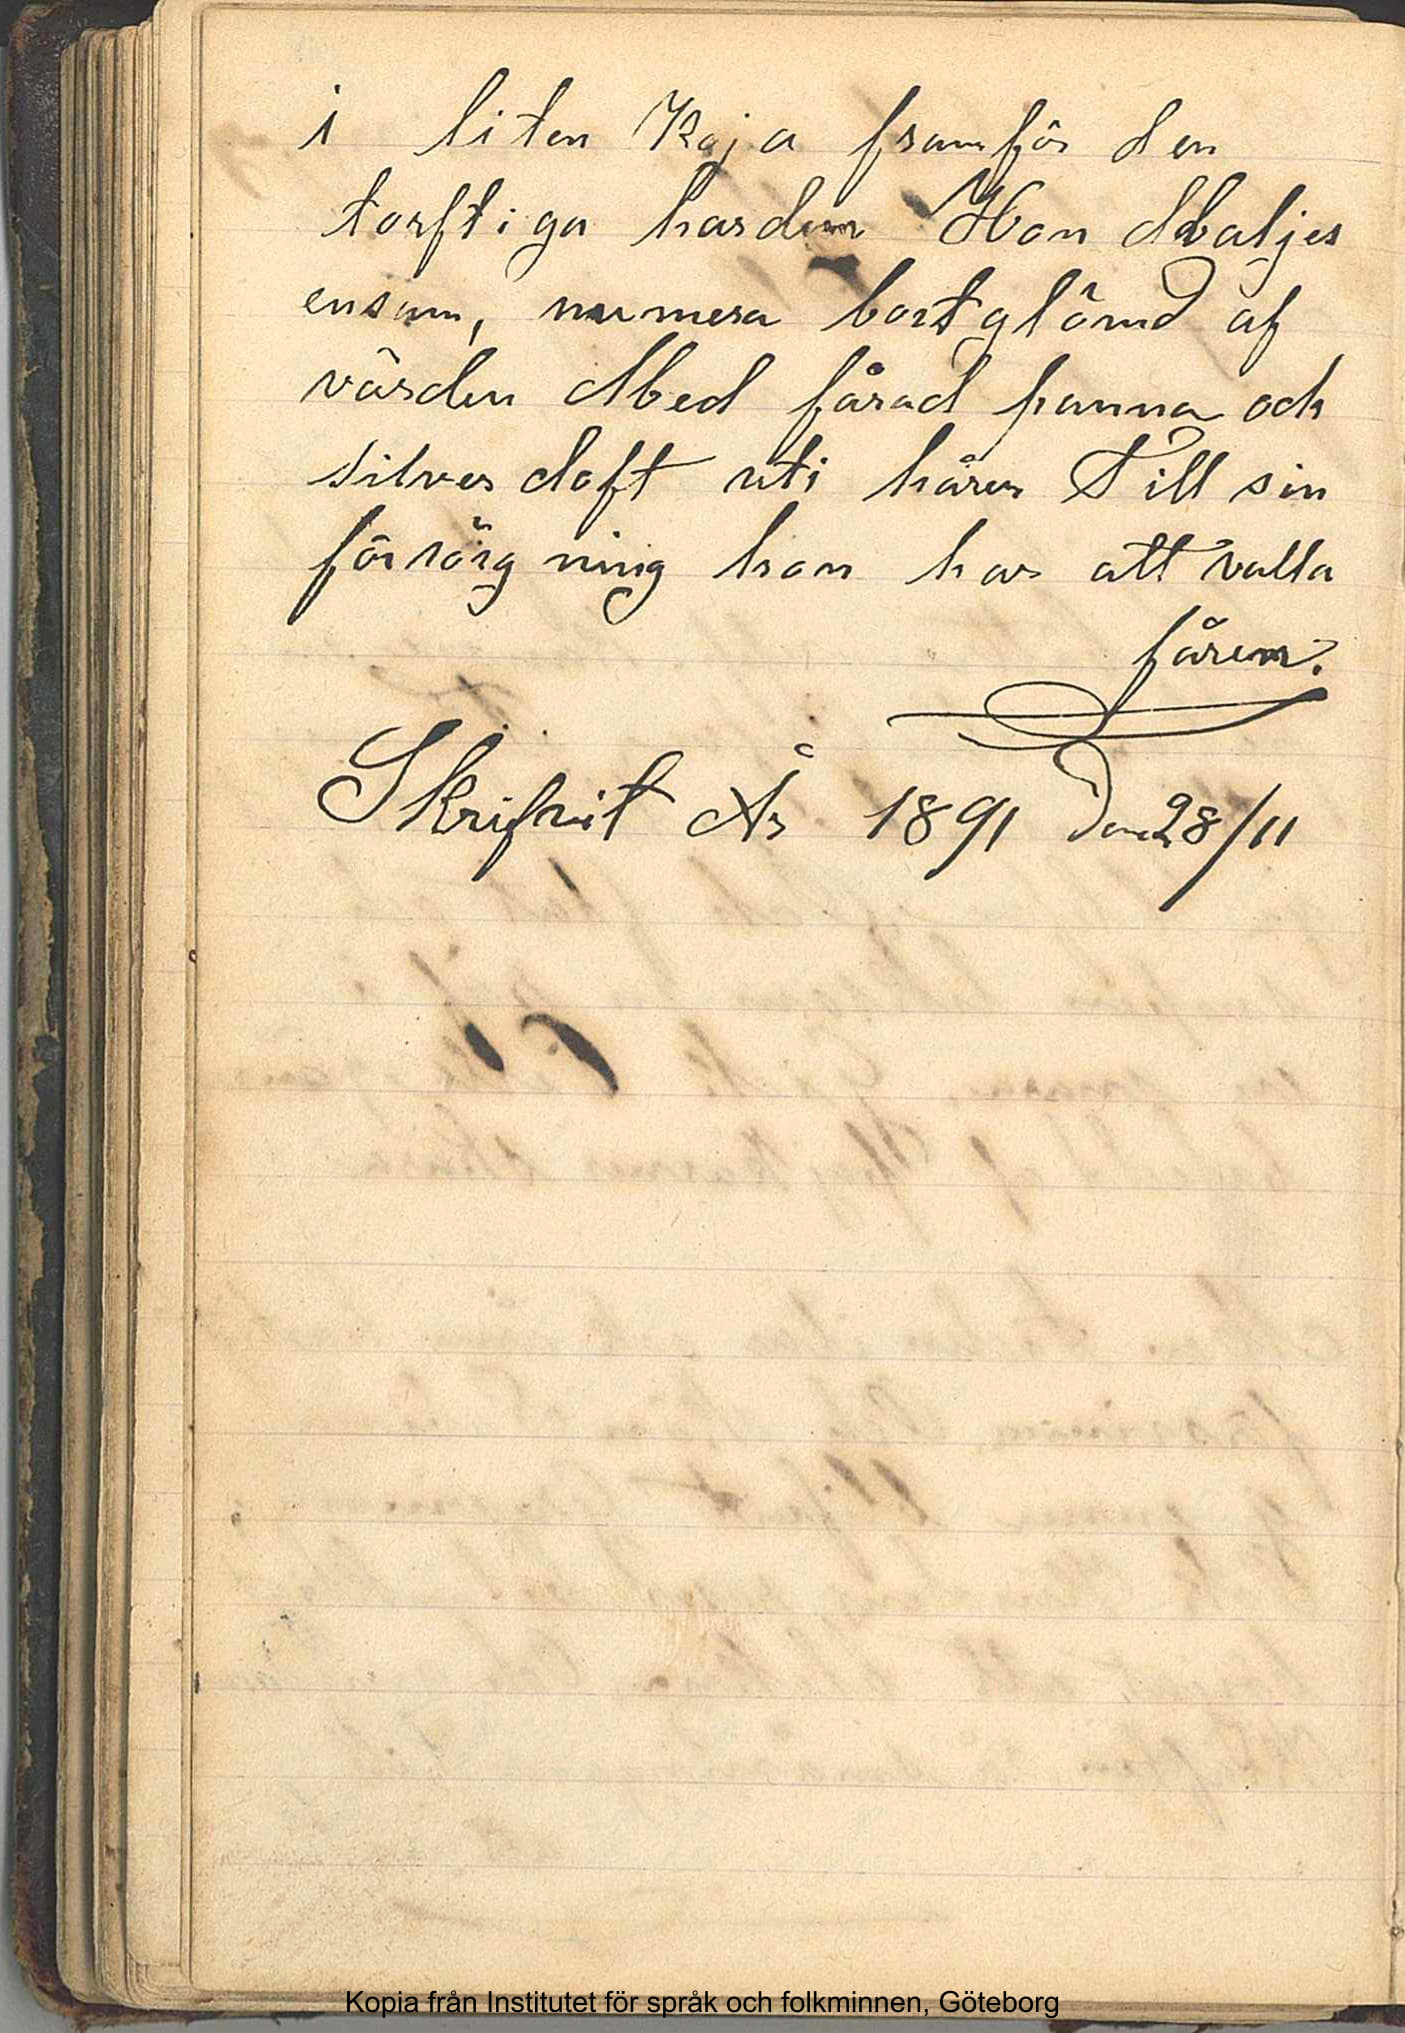 i liten Koja framför den
torftiga harden Hon dväljes
ensam, numera bortglömd af
värden Med fårad panna och
silver doft uti håren Till sin
försörg ning hon har att valla
fåren.
Skrifvit År 1891 Den 28/11
Kopia från Institutet för språk och folkminnen, Göteborg